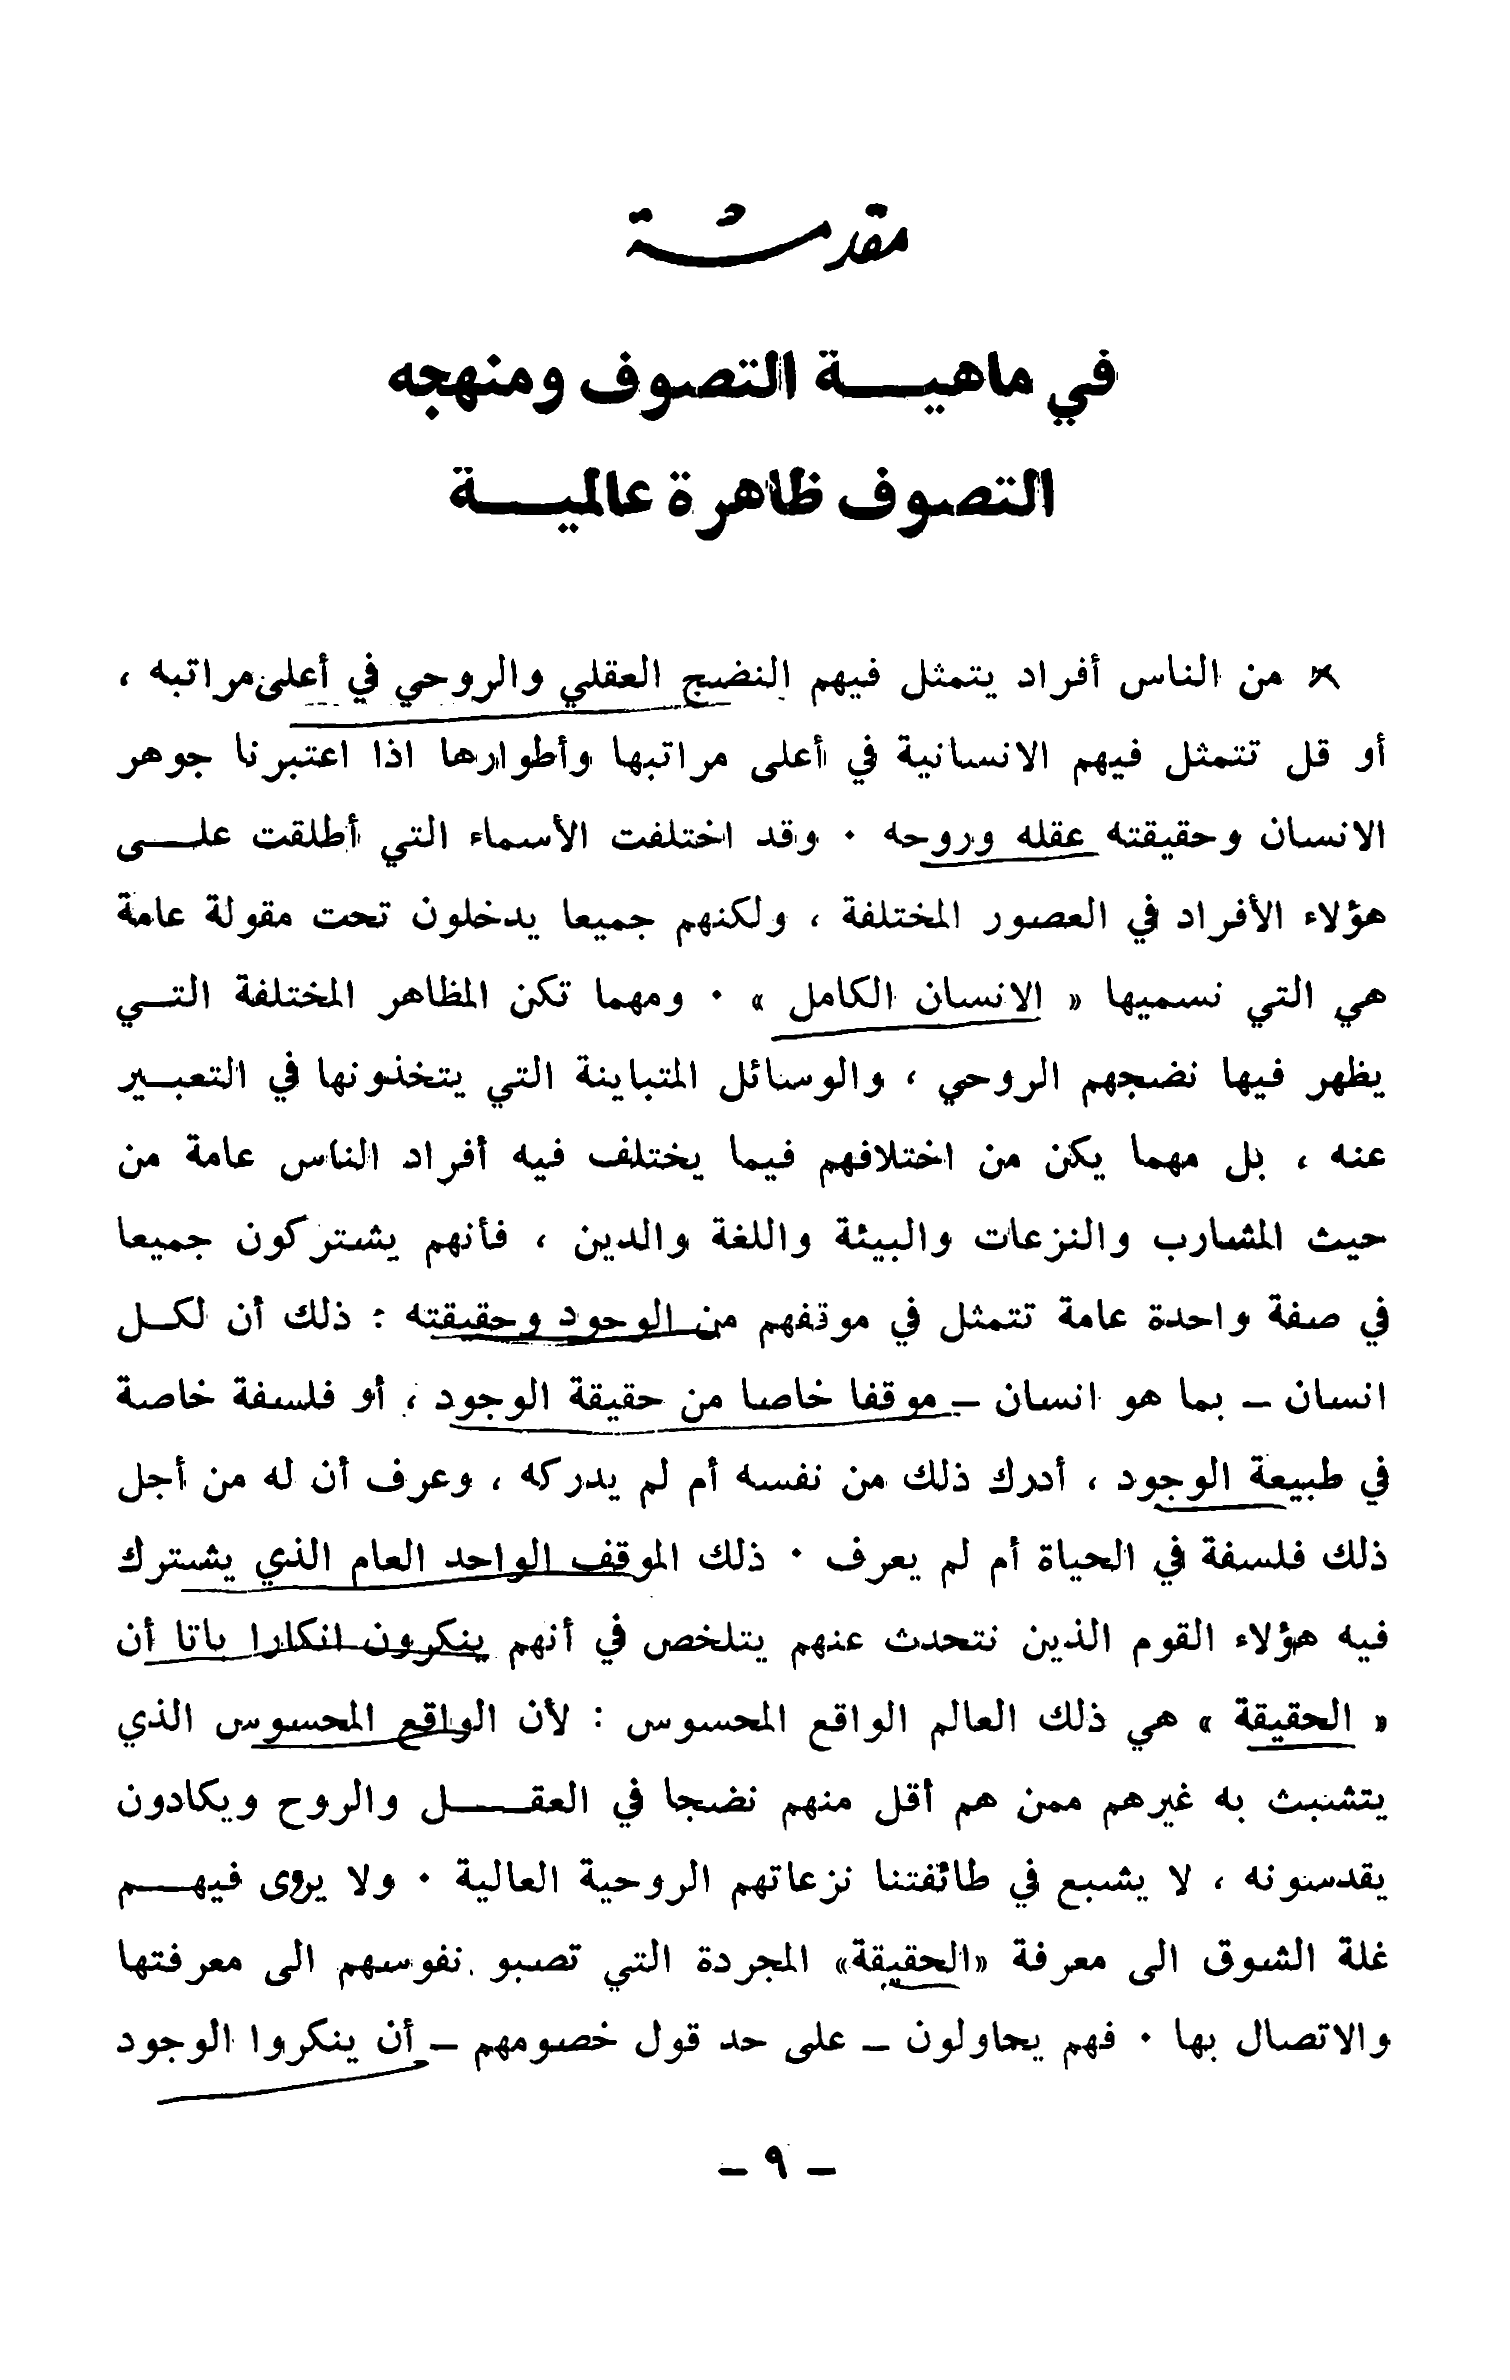 مقدمة
في ماهيـــة التصوف ومنهجه
التصوف ظاهرة عالميـــة
من الناس أفراد يتمثل فيهم النضج العقلي والروحي في أعلى مراتبه ،
أو قل تتمثل فيهم الانسانية في أعلى مراتبها وأطوارها اذا اعتبرنا جوهر
الانسان وحقيقته عقله وروحه ٠ وقد اختلفت الأسماء التي أطلقت علــى
هؤلاء الأفراد في العصور المختلفة ، ولكنهم جميعا يدخلون تحت مقولة عامة
هي التي نسميها « الانسان الكامل » ٠ ومهما تكن المظاهر المختلفة التــي
يظهر فيها نضجهم الروحي ، والوسائل المتباينة التي يتخذونها في التعبــير
عنه ، بل مهما يكن من اختلافهم فيما يختلف فيه أفراد الناس عامة من
حيث المشارب والنزعات والبيئة واللغة والدين ، فأنهم يشتركون جميعا
في صفة واحدة عامة تتمثل في موقفهم من الوجود وحقيقته : ذلك أن لكــل
انسان – بما هو انسان – موقفا خاصا من حقيقة الوجود ، أو فلسفة خاصة
في طبيعة الوجود ، أدرك ذلك من نفسه أم لم يدركه ، وعرف أن له من أجل
ذلك فلسفة في الحياة أم لم يعرف ٠ ذلك الموقف الواحد العام الذي يشترك
فيه هؤلاء القوم الذين نتحدث عنهم يتلخص في أنهم ينكرون انكارا باتا أن
« الحقيقة » هي ذلك العالم الواقع المحسوس : لأن الواقع المحسوس الذي
يتشبث به غيرهم ممن هم أقل منهم نضجا في العقـــل والروح ويكادون
يقدسونه ، لا يشبع في طائفتنا نزعاتهم الروحية العالية ٠ ولا يروى فيهــم
غلة الشوق الى معرفة «الحقيقة» المجردة التي تصبو نفوسهم الى معرفتها
والاتصال بها ٠ فهم يحاولون – على حد قول خصومهم – أن ينكروا الوجود
– ٩ –